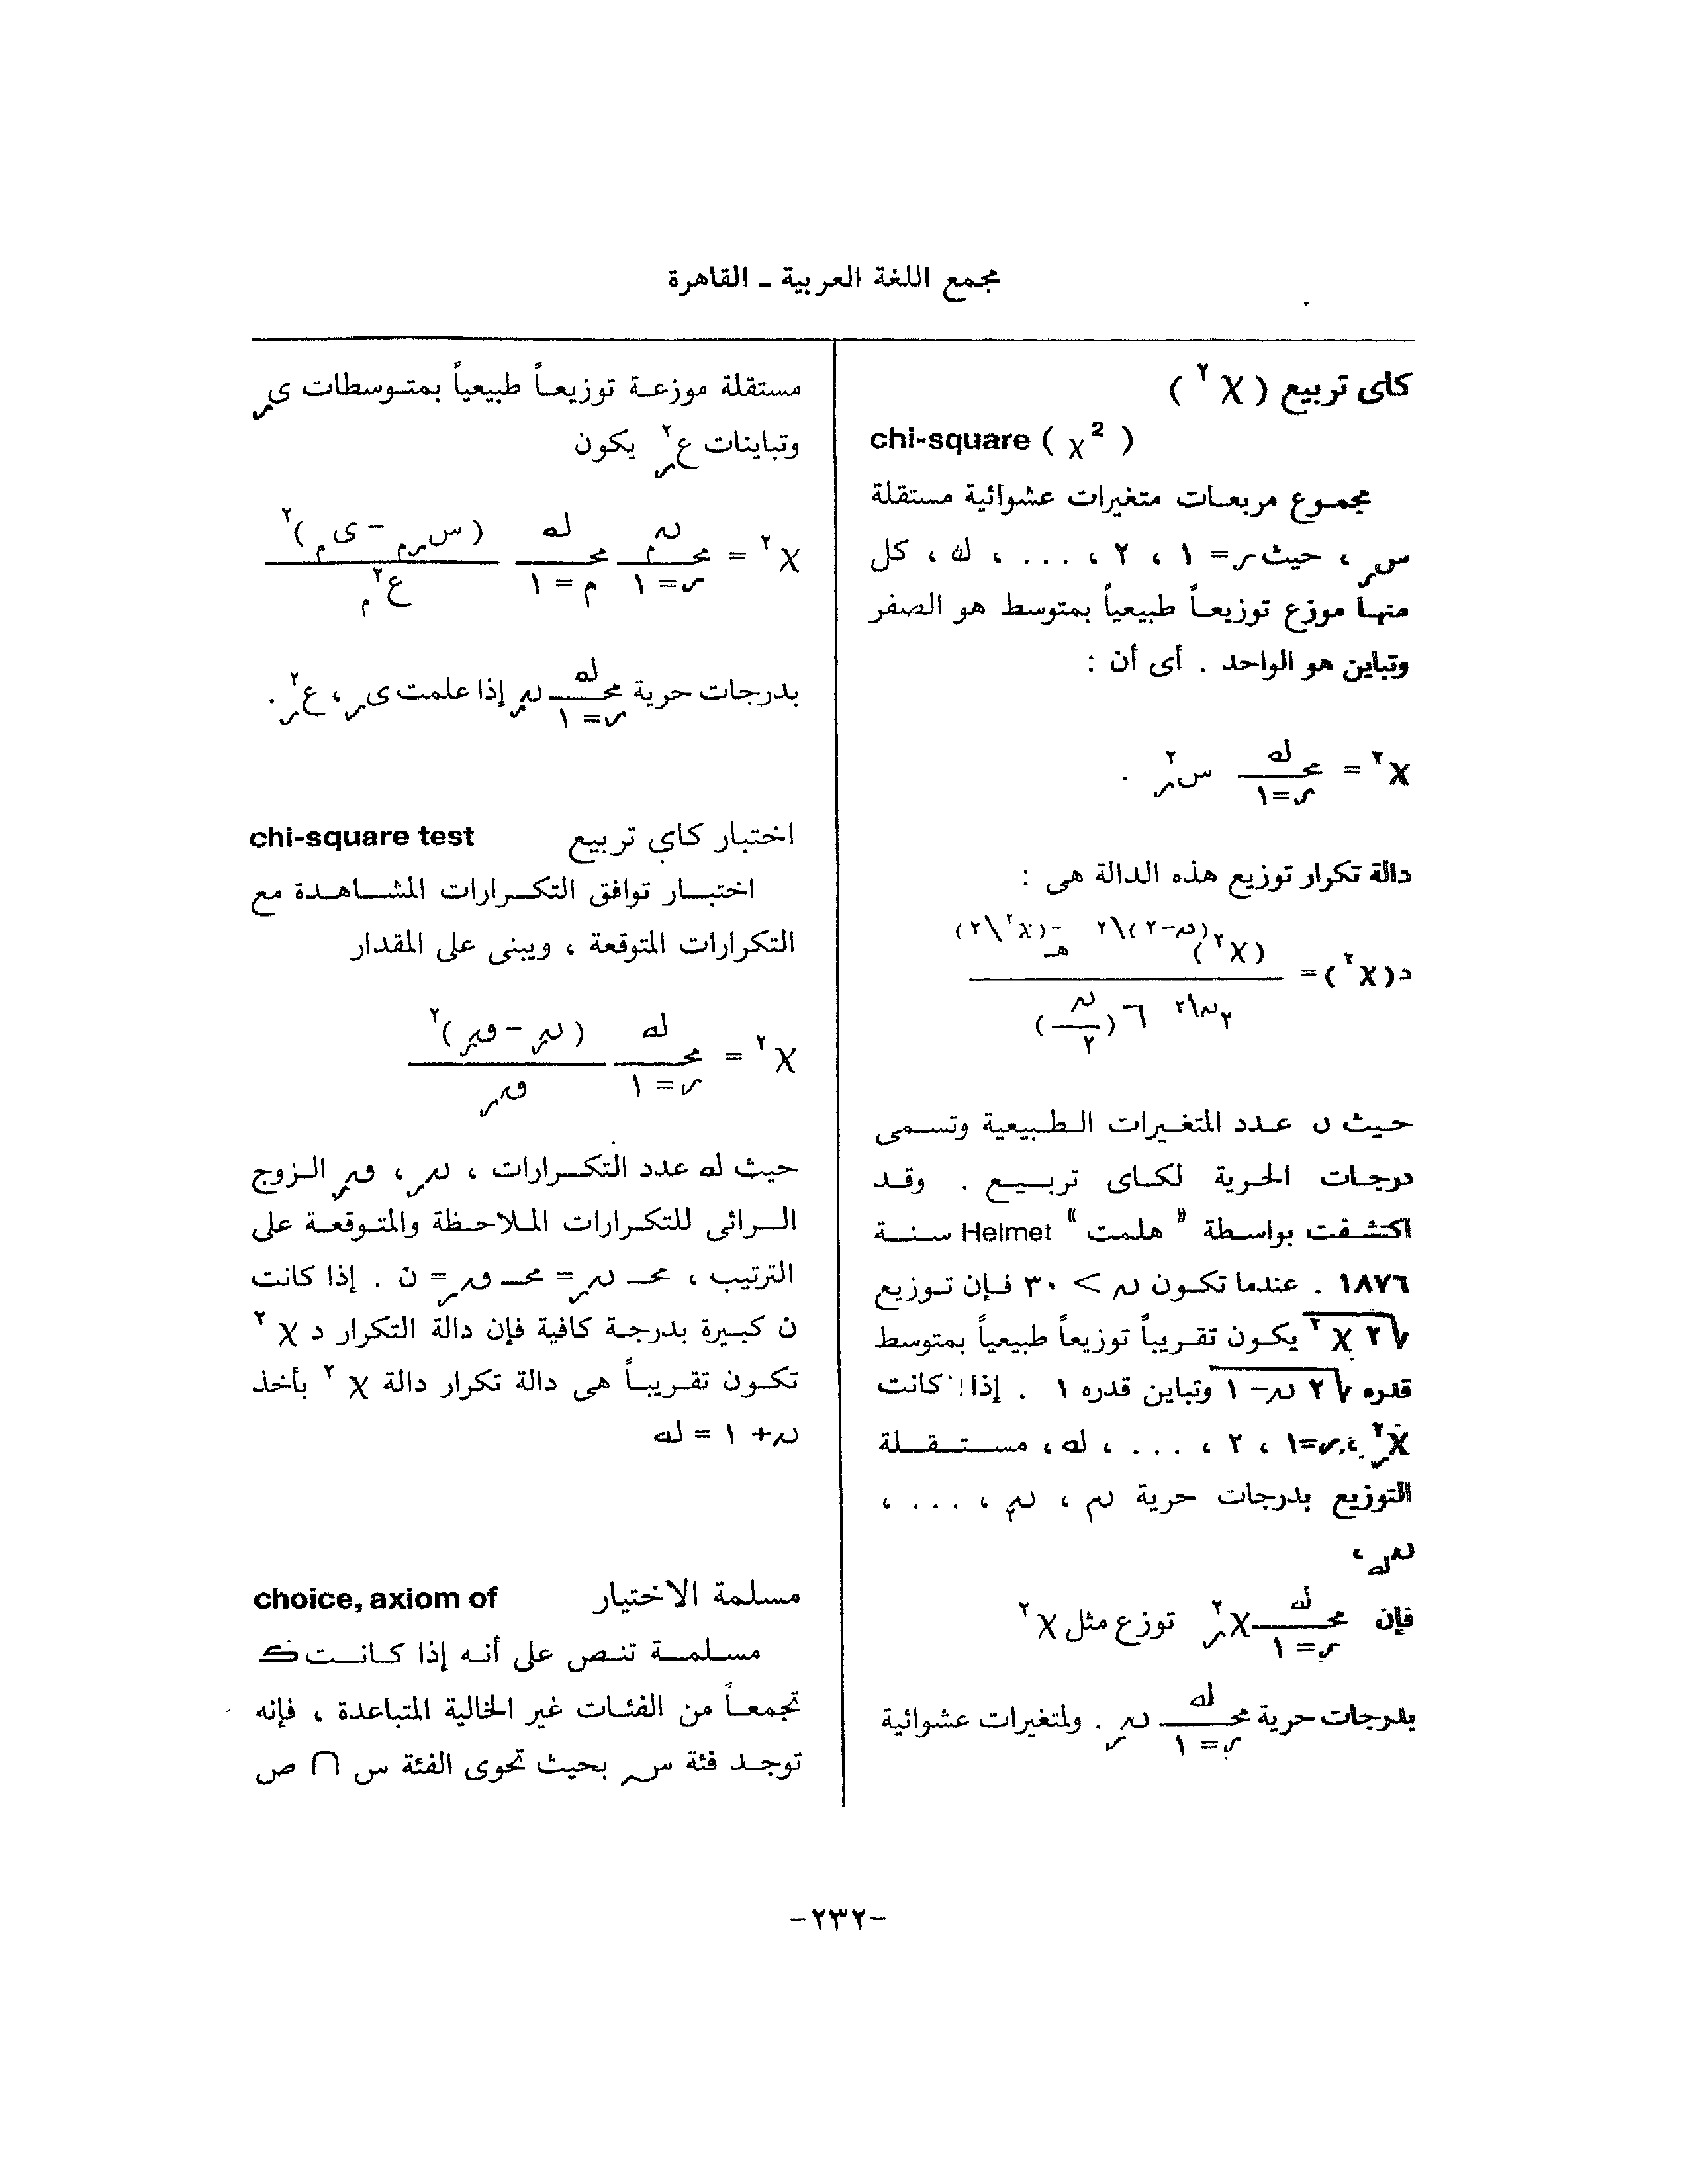 مجمع اللغة العربية ـ القاهرة
كاى تربيع ( χ ٢ )
chi-square ( χ 2 )
مجموع مربعات متغيرات عشوائية مستقلة
س ر ، حيث ر = ١ ، ٢ ، . . . ، ك ، كل
منها موزع توزيعاً طبيعياً بمتوسط هو الصفر
وتباين هو الواحد . أى أن :
χ ٢ = محـ له ر=١ س ر ٢ .
دالة تكرار توزيع هذه الدالة هى :
د( χ ٢ ) = ( χ ٢ ) (ں-٢)\٢ هـ -( χ ٢\٢)
٢ ں\٢ ( ں ٢ )
حيث ں عدد المتغيرات الطبيعية وتسمى
درجات الحرية لكاى تربيع . وقد
اكتشفت بواسطة " هلمت " Helmet سنة
١٨٧٦ . عندما تكون ں > ٣٠ فإن توزيع
√ ٢ χ ٢ يكون تقريباً توزيعاً طبيعياً بمتوسط
قدره √ ٢ ں – ١ وتباين قدره ١ . إذا كانت
χ ر ٢ ، ر=١ ، ٢ ، . . . ، له ، مستقلة
التوزيع بدرجات حرية ں ١ ، ں ٢ ، . . . ،
ں له ،
فإن محـ له ر=١ χ ر ٢ توزع مثل χ ٢
بدرجات حرية محـ له ر=١ ں ر . ولمتغيرات عشوائية
مستقلة موزعة توزيعاً طبيعياً بمتوسطات ى ر
وتباينات ع ر ٢ يكون
χ ٢ = محـ ں م ر=١ محـ له م=١ ( س ر م – ى م ) ٢
ع م ٢
بدرجات حرية محـ له ر=١ ں ر إذا علمت ى ر ، ع ر ٢ .
اختبار كاي تربيع chi-square test
اختبار توافق التكرارات المشاهدة مع
التكرارات المتوقعة ، ويبنى على المقدار
χ ٢ = محـ له ر=١ ( ں ر – ق ر ) ٢
ق ر
حيث له عدد التكرارات ، ں ر ، ق ر الزوج
الرائى للتكرارات الملاحظة والمتوقعة على
الترتيب ، محـ ں ر = محـ ق ر = ن . إذا كانت
ن كبيرة بدرجة كافية فإن دالة التكرار د χ ٢
تكون تقريباً هى دالة تكرار دالة χ ٢ بأخذ
ں + ١ = له
مسلمة الاختيار choice, axiom of
مسلمة تنص على أنه إذا كانت ک
تجمعاً من الفئات غير الخالية المتباعدة ، فإنه
توجد فئة س بحيث تحوى الفئة س ∩ ص
–٢٣٢–